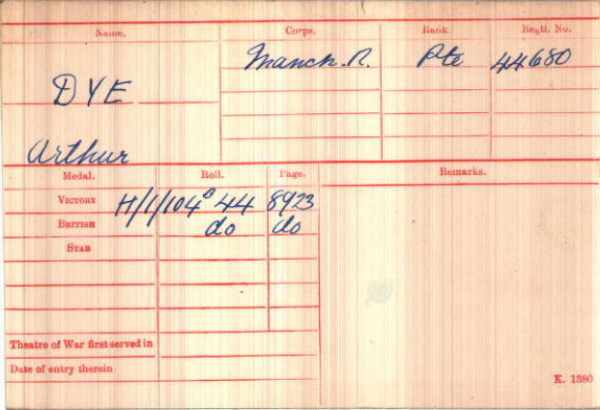 Name. Corps. Rank. Regtl. No.
Manch. R. Pte 44680
DYE
Arthur
Medal. Roll. Page. Remarks.
VICTORY H/1/104B 44 8923
BRITISH do do
STAR
Theatre of War first served in
Date of entry therein
K. 1380